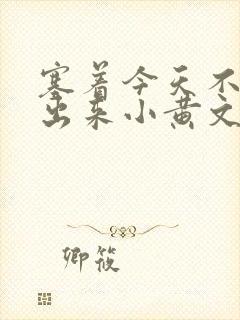 塞着今天不
出来小黄文
卿筱